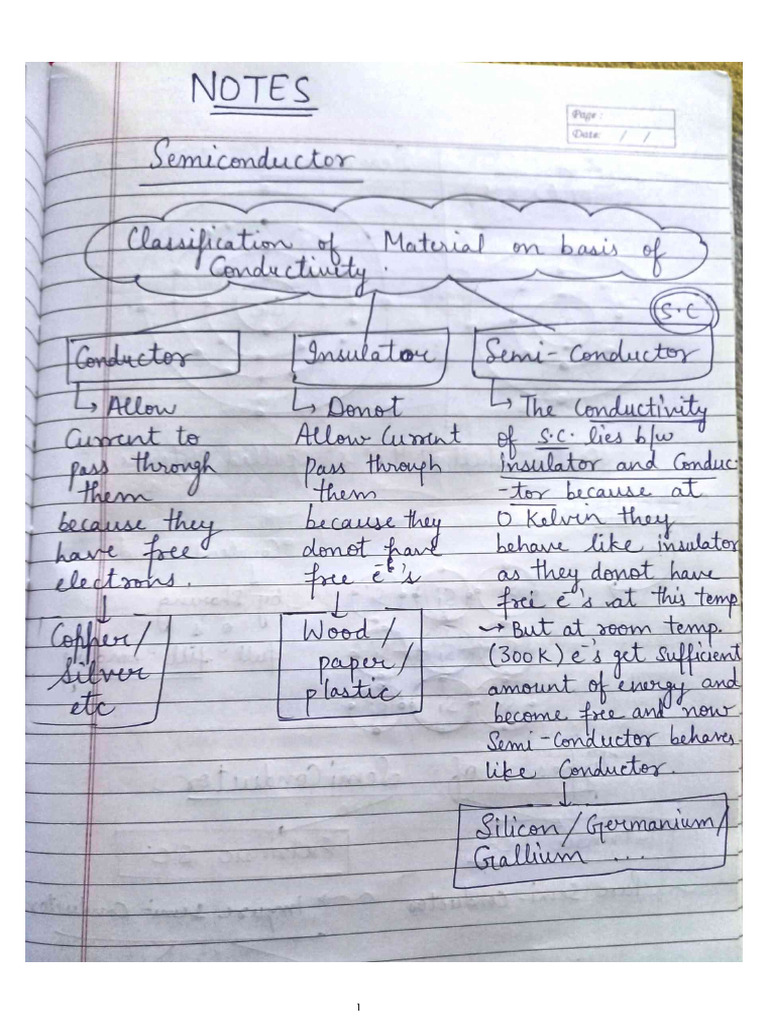 NOTES
Page :
Date: / /
Semiconductor
Classification of Material on basis of
Conductivity.
S.C
Conductor
↳ Allow
Current to
pass through
them
because they
have free
electrons.
Copper/
Silver
etc
Insulator
↳ Donot
Allow Current
pass through
them
because they
donot have
free e⁻'s
Wood/
paper/
plastic
Semi-Conductor
↳ The Conductivity
of S.C. lies b/w
insulator and Conduc-
-tor because at
0 Kelvin they
behave like insulator
as they donot have
free e⁻'s at this temp
→ But at room temp.
(300K) e⁻'s get sufficient
amount of energy and
become free and now
Semi-Conductor behaves
like Conductor.
Silicon/Germanium/
Gallium ...
1